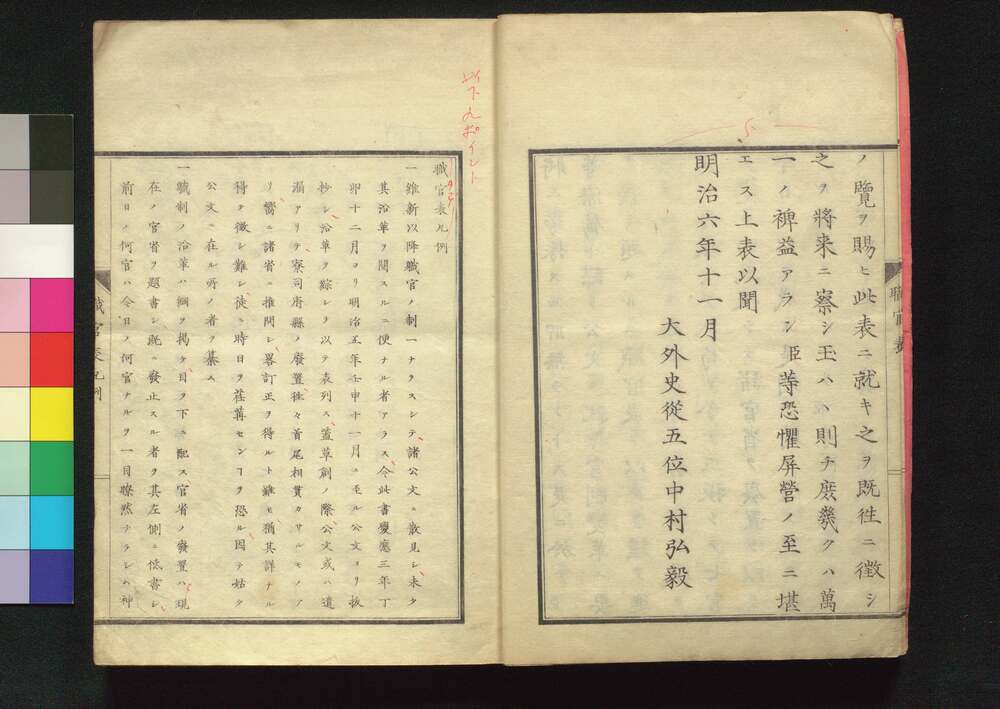 ノ覽ヲ賜ヒ此表ニ就キ之ヲ既往ニ徴シ
之ヲ將来ニ察シ玉ハヽ則チ庶幾クハ萬
一ノ裨益アラン臣等恐懼屏營ノ至ニ堪
エス上表以聞
明治六年十一月
大外史從五位中村弘毅
職官表
以下九ポイント
職官表凡例
一維新以降職官ノ制一ナラスシテ諸公文ニ散見シ未タ
其沿革ヲ閲スルニ便ナル者アラス今此書慶應三年丁
卯十二月ヨリ明治五年壬申十一月ニ至ル公文ヨリ抜
抄シ沿革ヲ綜シ以テ表列ス蓋草創ノ際公文或ハ遺
漏アリテ寮司府縣ノ廢置往々首尾相貫カサルモノア
リ嚮ニ諸省ニ推問シ畧訂正ヲ得ルト雖モ猶其詳ナル
得ヲ徴シ難シ徒ニ時日ヲ荏苒センヿヲ恐ル因テ姑ク
公文ニ在ル所ノ者ヲ纂ス
一職制ノ沿革ハ綱ヲ掲ケ目ヲ下ニ配ス官省ノ廢置ハ現
在ノ官省ヲ題書シ既ニ發止スル者ヲ其左側ニ低書シ
前日ノ何官ハ今日ノ何官ナルヲ一目瞭然テラシム神
職官表凡例